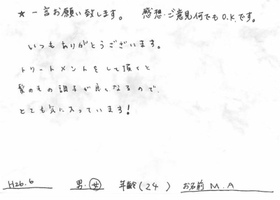 ★一言お願い致します。 感想・ご意見何でもO.Kです。
いつもありがとうございます。
トリートメントをして頂くと
髪のもの調子が良くなるので、
とても気に入っています!
H26.6 男・女 年齢(24) お名前 M.A